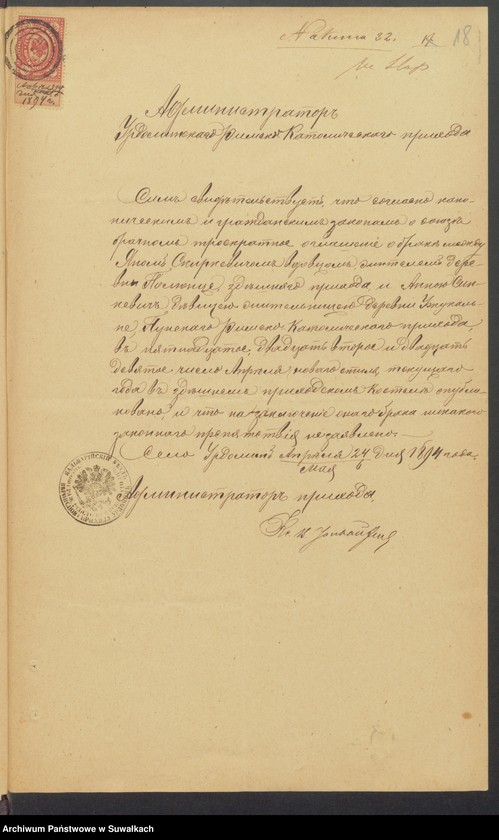 № акта 32.
18
Администраторъ
Урдоминскаго Римско Католическаго прихода
Симъ свидѣтельствуетъ, что согласно кано-
ническимъ и гражданскимъ законамъ о союзѣ
брачномъ троекратное оглашеніе о бракѣ между
Яномъ Скиркевичемъ вдовцомъ жителемъ дере-
вни здѣшняго прихода и Анною Син-
кевичъ дѣвицею жительницею деревни
Пунскаго Римско Католическаго прихода,
въ пятнадцатое, двадцать второе и двадцать
девятое число Апрѣля новаго стиля текущаго
года въ здѣшнемъ приходскомъ костелѣ опубли-
ковано, и что на заключеніе онаго брака никакого
законнаго препятствія незаявлено.—
Село Урдоминъ Апрѣля 24 дня 1894 года.
Мая 6
Администраторъ прихода
Кс.
1894 г.
Archiwum Państwowe w Suwałkach